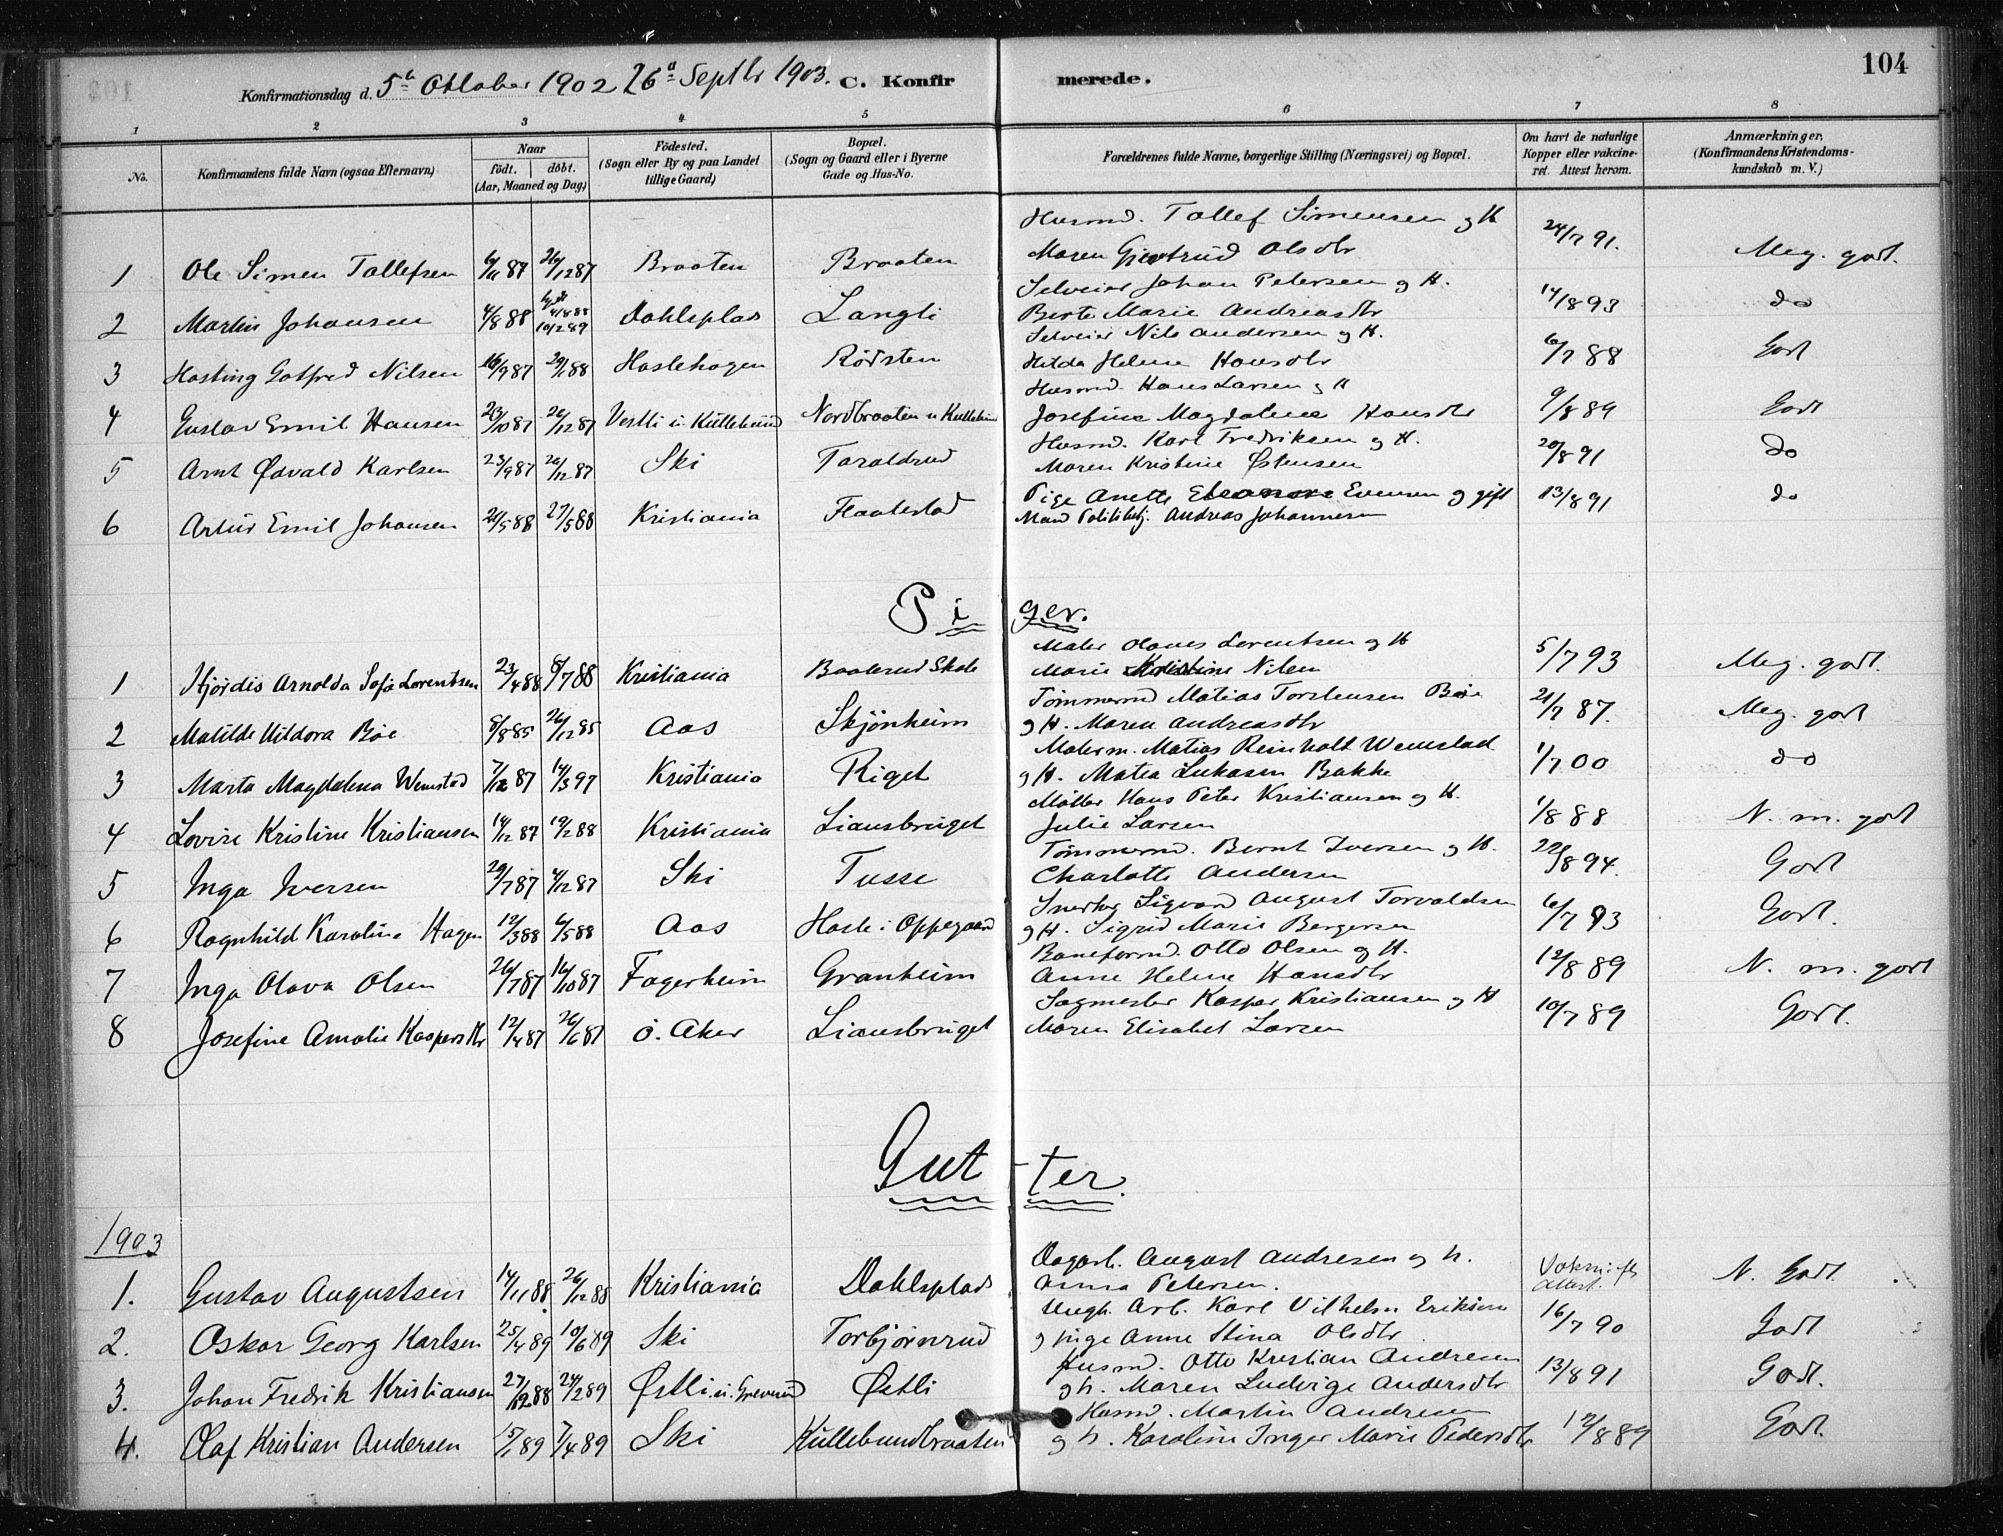 104
Konfirmationsdag d. 5te Oktober 1902 26de Septbr 1903. C. Konfirmerede.
1 2 3 4 5 6 7 8
No. Konfirmandens fulde Navn (ogsaa Efternavn) Naar födt. döbt. (Aar, Maaned og Dag) Födested. (Sogn eller By og paa Landet tillige Gaard) Bopæl. (Sogn og Gaard eller i Byerne Gade og Hus-No. Forældrenes fulde Navne, borgerlige Stilling (Næringsvei) og Bopæl. Om havt de naturlige Kopper eller vakcineret. Attest herom. Anmærkninger. (Konfirmandens Kristendomskundskab m. V.)
Husmd. Tollef Simensen og H
1 Ole Simen Tollefsen 6/11 87 26/12 87 Braaten Braaten Maren Gjertrud Olsdtr 24/7 91. Meg. godt.
Selveier Johan Petersen og H.
2 Martin Johansen 4/8 88 10/2 89 Dahlsplads Langli Berte Marie Andreasdtr 14/8 93 do
Selveier Nils Andersen og H.
3 Hasting Gotfred Nilsen 16/9 87 29/1 88 Haslehagen Rödsten Hilda Helene Hansdtr 6/7 88 Godt
Husmd. Hans Larsen og H
4 Gustav Emil Hansen 23/10 87 26/12 87 Vestli u. Kullebund Nordbraaten u. Kullebund Josefine Magdalene Hansdtr 9/8 89 Godt
Husmd. Karl Fredriksen og H.
5 Arnt Ödvald Karlsen 23/9 87 26/12 87 Ski Taraldrud Maren Kristine Østensen 20/8 91 do
Pige Anette Eleanore Evensen og gift
6 Artur Emil Johansen 21/5 88 27/5 88 Kristiania Flaatestad Mand Politibtj. Andreas Johannesen 13/8 91 do
Piger.
Maler Olaves Lorentsen og H
1 Hjördis Arnolda Sofie Lorentsen 23/4 88 8/7 88 Kristiania Baalerud Skole Marie Kristine Nilsen 5/7 93 Meg. godt.
Tömmermd Matias Torstensen Böe
2 Matilde Hildora Böe 8/8 85 26/12 85 Aas Skjönheim og H. Maren Andreasdtr 21/7 87. Meg. godt
Malerm. Matias Reinholt Wemstad
3 Marta Magdalena Wemstad 7/12 87 14/3 97 Kristiania Riget og H. Matea Lukasen Bakke 1/7 00 do
Möller Hans Peter Kristiansen og H.
4 Lovise Kristine Kristiansen 14/12 87 19/2 88 Kristiania Liansbruget Julie Larsen 1/8 88 N. m. godt
Tömmermd. Bernt Iversen og H.
5 Inga Iversen 29/7 87 4/12 87 Ski Tusse Charlotte Andersen 22/8 94. Godt
Snedker Sigvard August Torvaldsen
6 Ragnhild Karoline Hagen 12/3 88 6/5 88 Aas Hasle i Oppegaard og H. Sigrid Marie Bergersen 6/7 93 Godt.
Baneformd. Otto Olsen og H.
7 Inga Olava Olsen 26/7 87 16/10 87 Fagerheim Granheim Anne Helene Hansdtr 12/8 89 N. m. godt
Sagmester Kasper Kristiansen og H
8 Josefine Amalie Kaspersdtr 12/4 87 26/6 87 Ö. Aker Liansbruget Maren Elisabet Larsen 10/7 89 Godt.
Gutter.
1903
Dagarb. August Andresen og h.
1. Gustav Augustsen 14/11 88 26/12 88 Kristiania Dahlsplads Anna Petersen. Attest. N. Godt.
Ungk. Arb. Karl Vilhelm Eriksen
2. Oskar Georg Karlsen 25/4 89 10/6 89 Ski Torbjørnrud og pige Anne Stina Olsdtr 16/7 90 Godt
Husmd. Otto Kristian Andresen
3. Johan Fredrik Kristiansen 27/12 88 24/2 89 Østli u. Greverud Østli og h. Maren Ludvige Andersdtr 13/8 91 Godt.
Husmd. Martin Andresen
4. Olaf Kristian Andersen 15/1 89 7/4 89 Ski Kullebundbraaten og h. Karoline Inger Marie Pedersdtr 12/8 89 Godt.